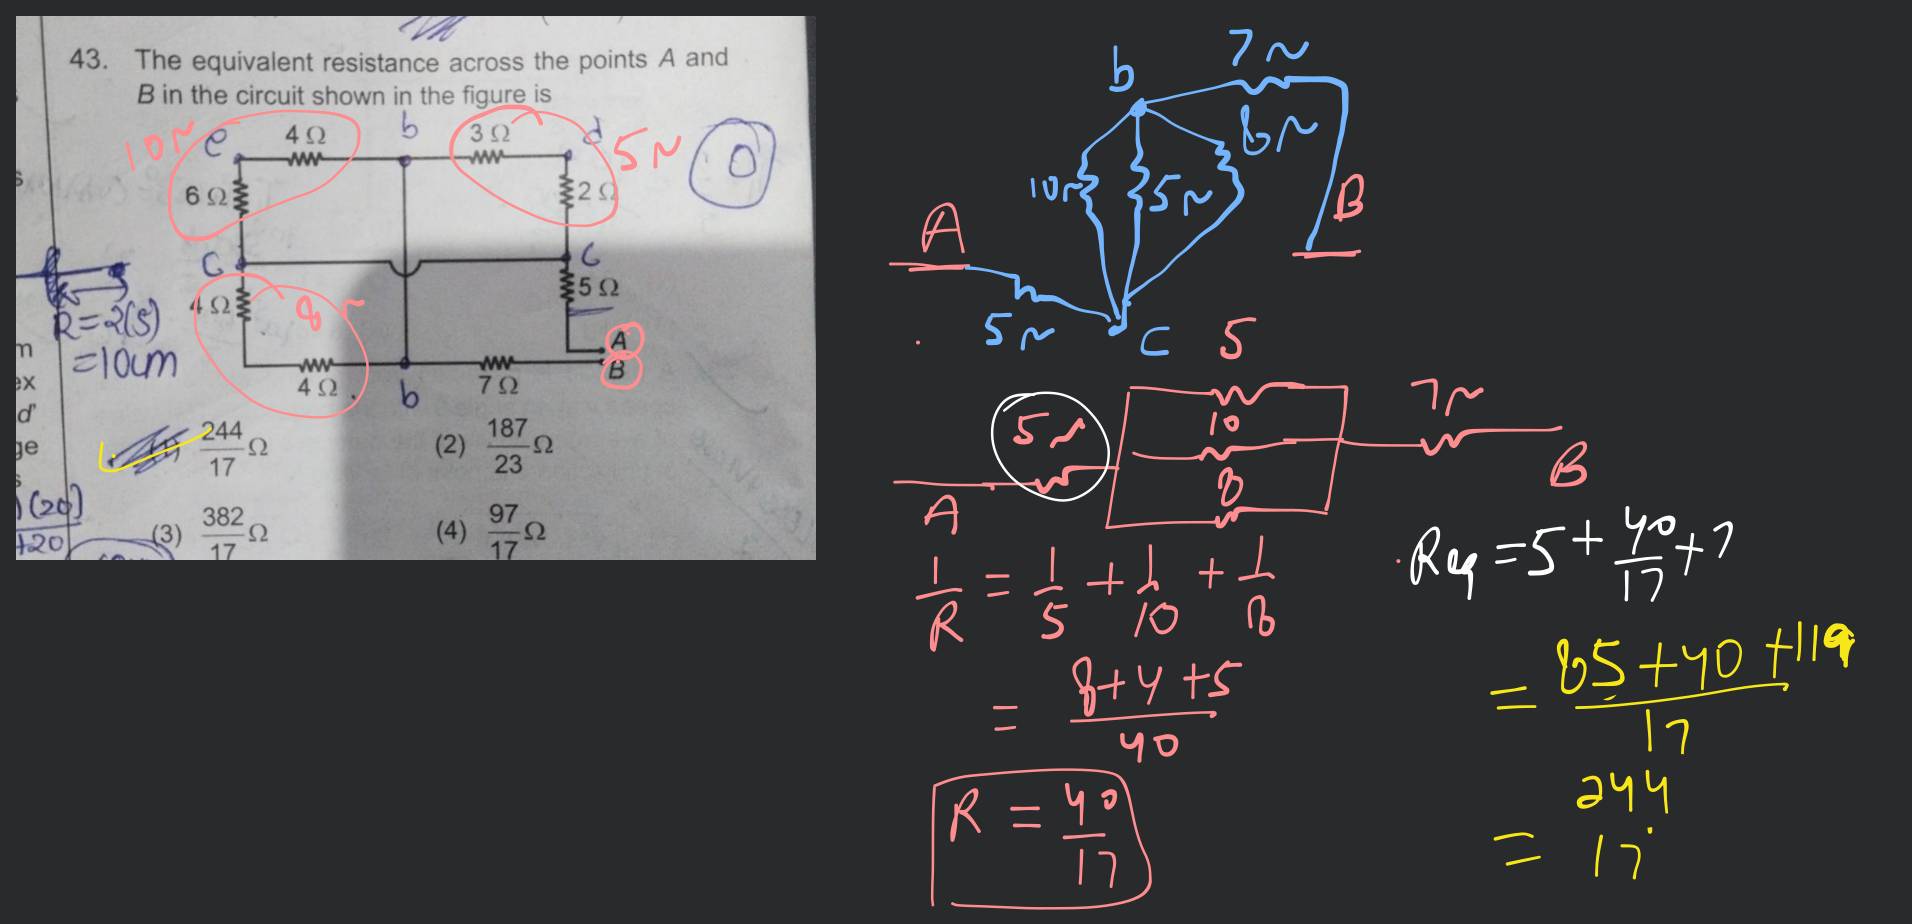 43. The equivalent resistance across the points A and
B in the circuit shown in the figure is
10~ e 4 Ω b 3 Ω d 5~ 0
6 Ω 2 Ω
C C
4 Ω 8~ 5 Ω
R=2(5)
=10cm
A
B
4 Ω b 7 Ω
m
ex
d'
ge
244/17 Ω
(2) 187/23 Ω
(20)
+20
(3) 382/17 Ω
(4) 97/17 Ω
b 7~
8~
10~ 5~ B
A
5~ C
5
5~ 10 7~
8
A B
1/R = 1/5 + 1/10 + 1/8
= 8+4+5/40
R = 40/17
Req = 5 + 40/17 + 7
= 85+40+119/17
= 244/17